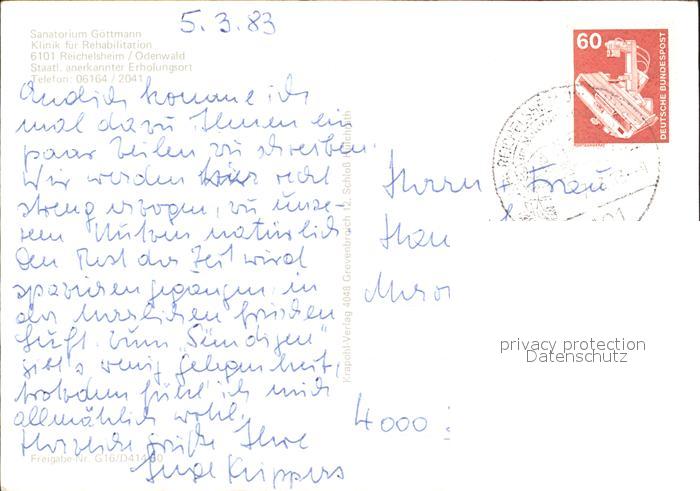 5.3.83
Sanatorium Göttmann
Klinik für Rehabilitation
6101 Reichelsheim / Odenwald
Staatl. anerkannter Erholungsort
Telefon: 06164 / 2041
Endlich komme ich
mal dazu Ihnen ein
paar Zeilen zu schreiben.
Wir werden hier recht
streng erzogen, zu unse-
rem Nutzen natürlich.
Den Rest der Zeit wird
spazieren gegangen in
der herrlichen frischen
Luft. Zum "Sündigen"
gibt's wenig Gelegenheit,
trotzdem fühle ich mich
allmählich wohl.
Herzliche Grüße Ihre
Inge Krippers
Freigabe-Nr. G16/D414
Krapohl-Verlag 4048 Grevenbroich 12, Schloß Hülchrath
60
DEUTSCHE BUNDESPOST
Herrn + Frau
Han
4000
privacy protection
Datenschutz